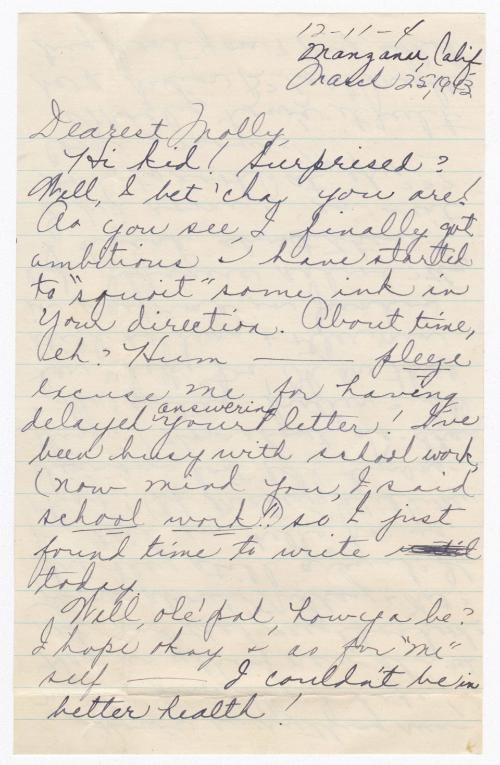 12-11-4
Manzanar, Calif.
March 25, 1943
Dearest Molly,
Hi kid! Surprised?
Well, I bet 'cha you are!
As you see, I finally got
ambitious & have started
to "squoit" some ink in
your direction. About time,
eh? Hum —— pleeze
excuse me for having
delayed answering your letter! I've
been busy with school work,
(now mind you, I said
school work!!) so I just
found time to write until
today.
Well, ole' pal, howya be?
I hope okay & as for "me"
self —— I couldn't be in
better health!